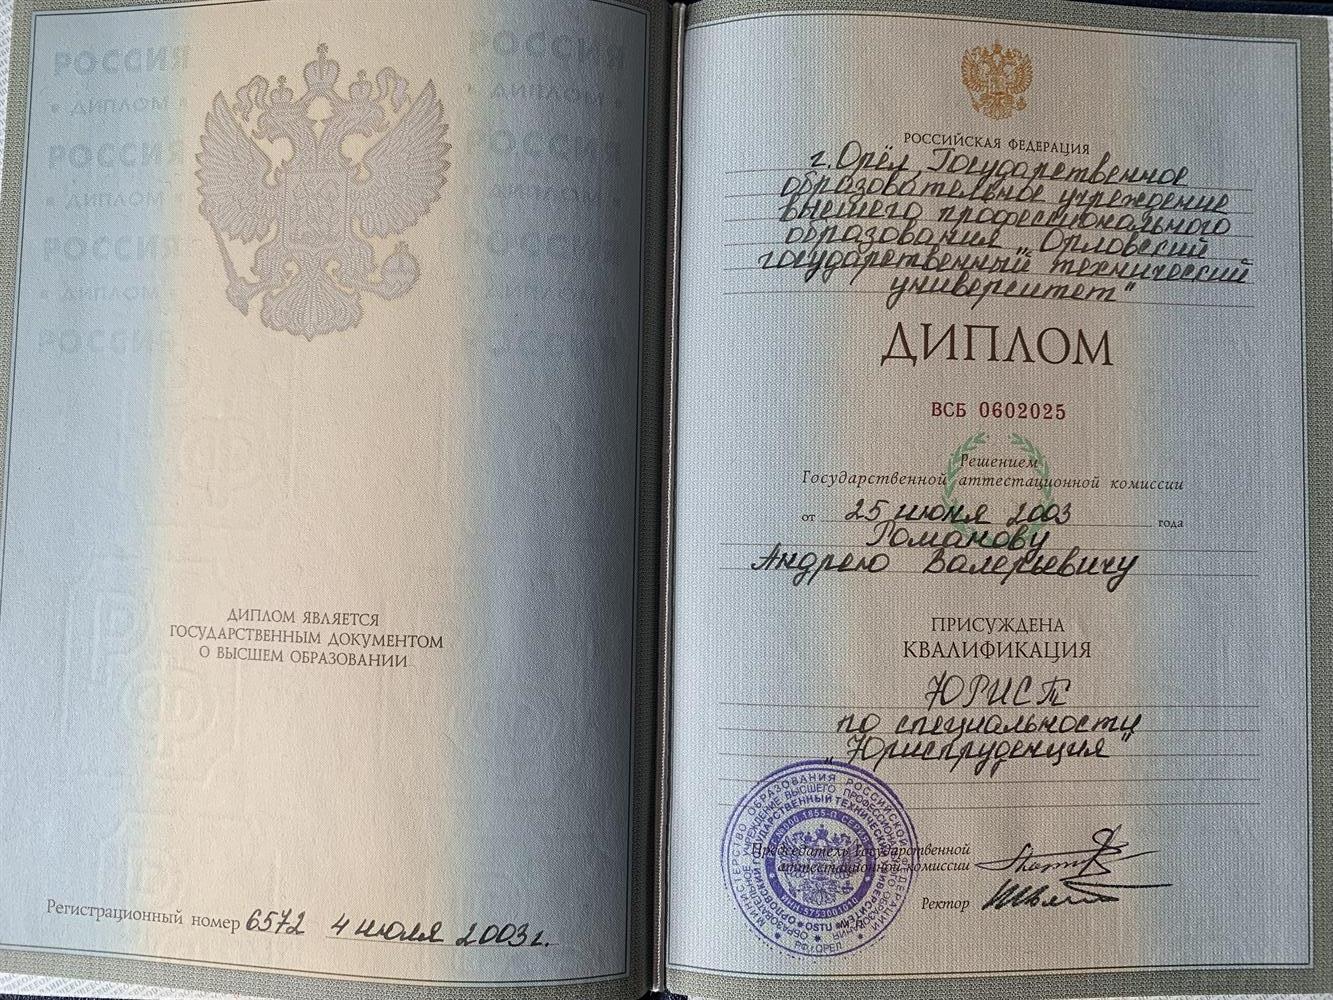 РОССИЯ
РОССИЯ
• ДИПЛОМ •
• ДИПЛОМ •
РОССИЯ
РОССИЯ
• ДИПЛОМ •
• ДИПЛОМ •
РОССИЯ
РОССИЯ
• ДИПЛОМ •
• ДИПЛОМ •
РОССИЯ
РОССИЯ
ДИПЛОМ ЯВЛЯЕТСЯ
ГОСУДАРСТВЕННЫМ ДОКУМЕНТОМ
О ВЫСШЕМ ОБРАЗОВАНИИ
Регистрационный номер 6572 4 июля 2003г.
РОССИЙСКАЯ ФЕДЕРАЦИЯ
г. Орёл, Государственное
образовательное учреждение
высшего профессионального
образования „Орловский
государственный технический
университет"
ДИПЛОМ
ВСБ 0602025
Решением
Государственной аттестационной комиссии
от 25 июня 2003 года
Романову
Андрею Валерьевичу
ПРИСУЖДЕНА
КВАЛИФИКАЦИЯ
ЮРИСТ
по специальности
„Юриспруденция"
Председатель Государственной
аттестационной комиссии
Ректор
МИНИСТЕРСТВО ОБРАЗОВАНИЯ РОССИЙСКОЙ ФЕДЕРАЦИИ
ОРЛОВСКИЙ ГОСУДАРСТВЕННЫЙ ТЕХНИЧЕСКИЙ УНИВЕРСИТЕТ
OSTU
РФ г.ОРЕЛ